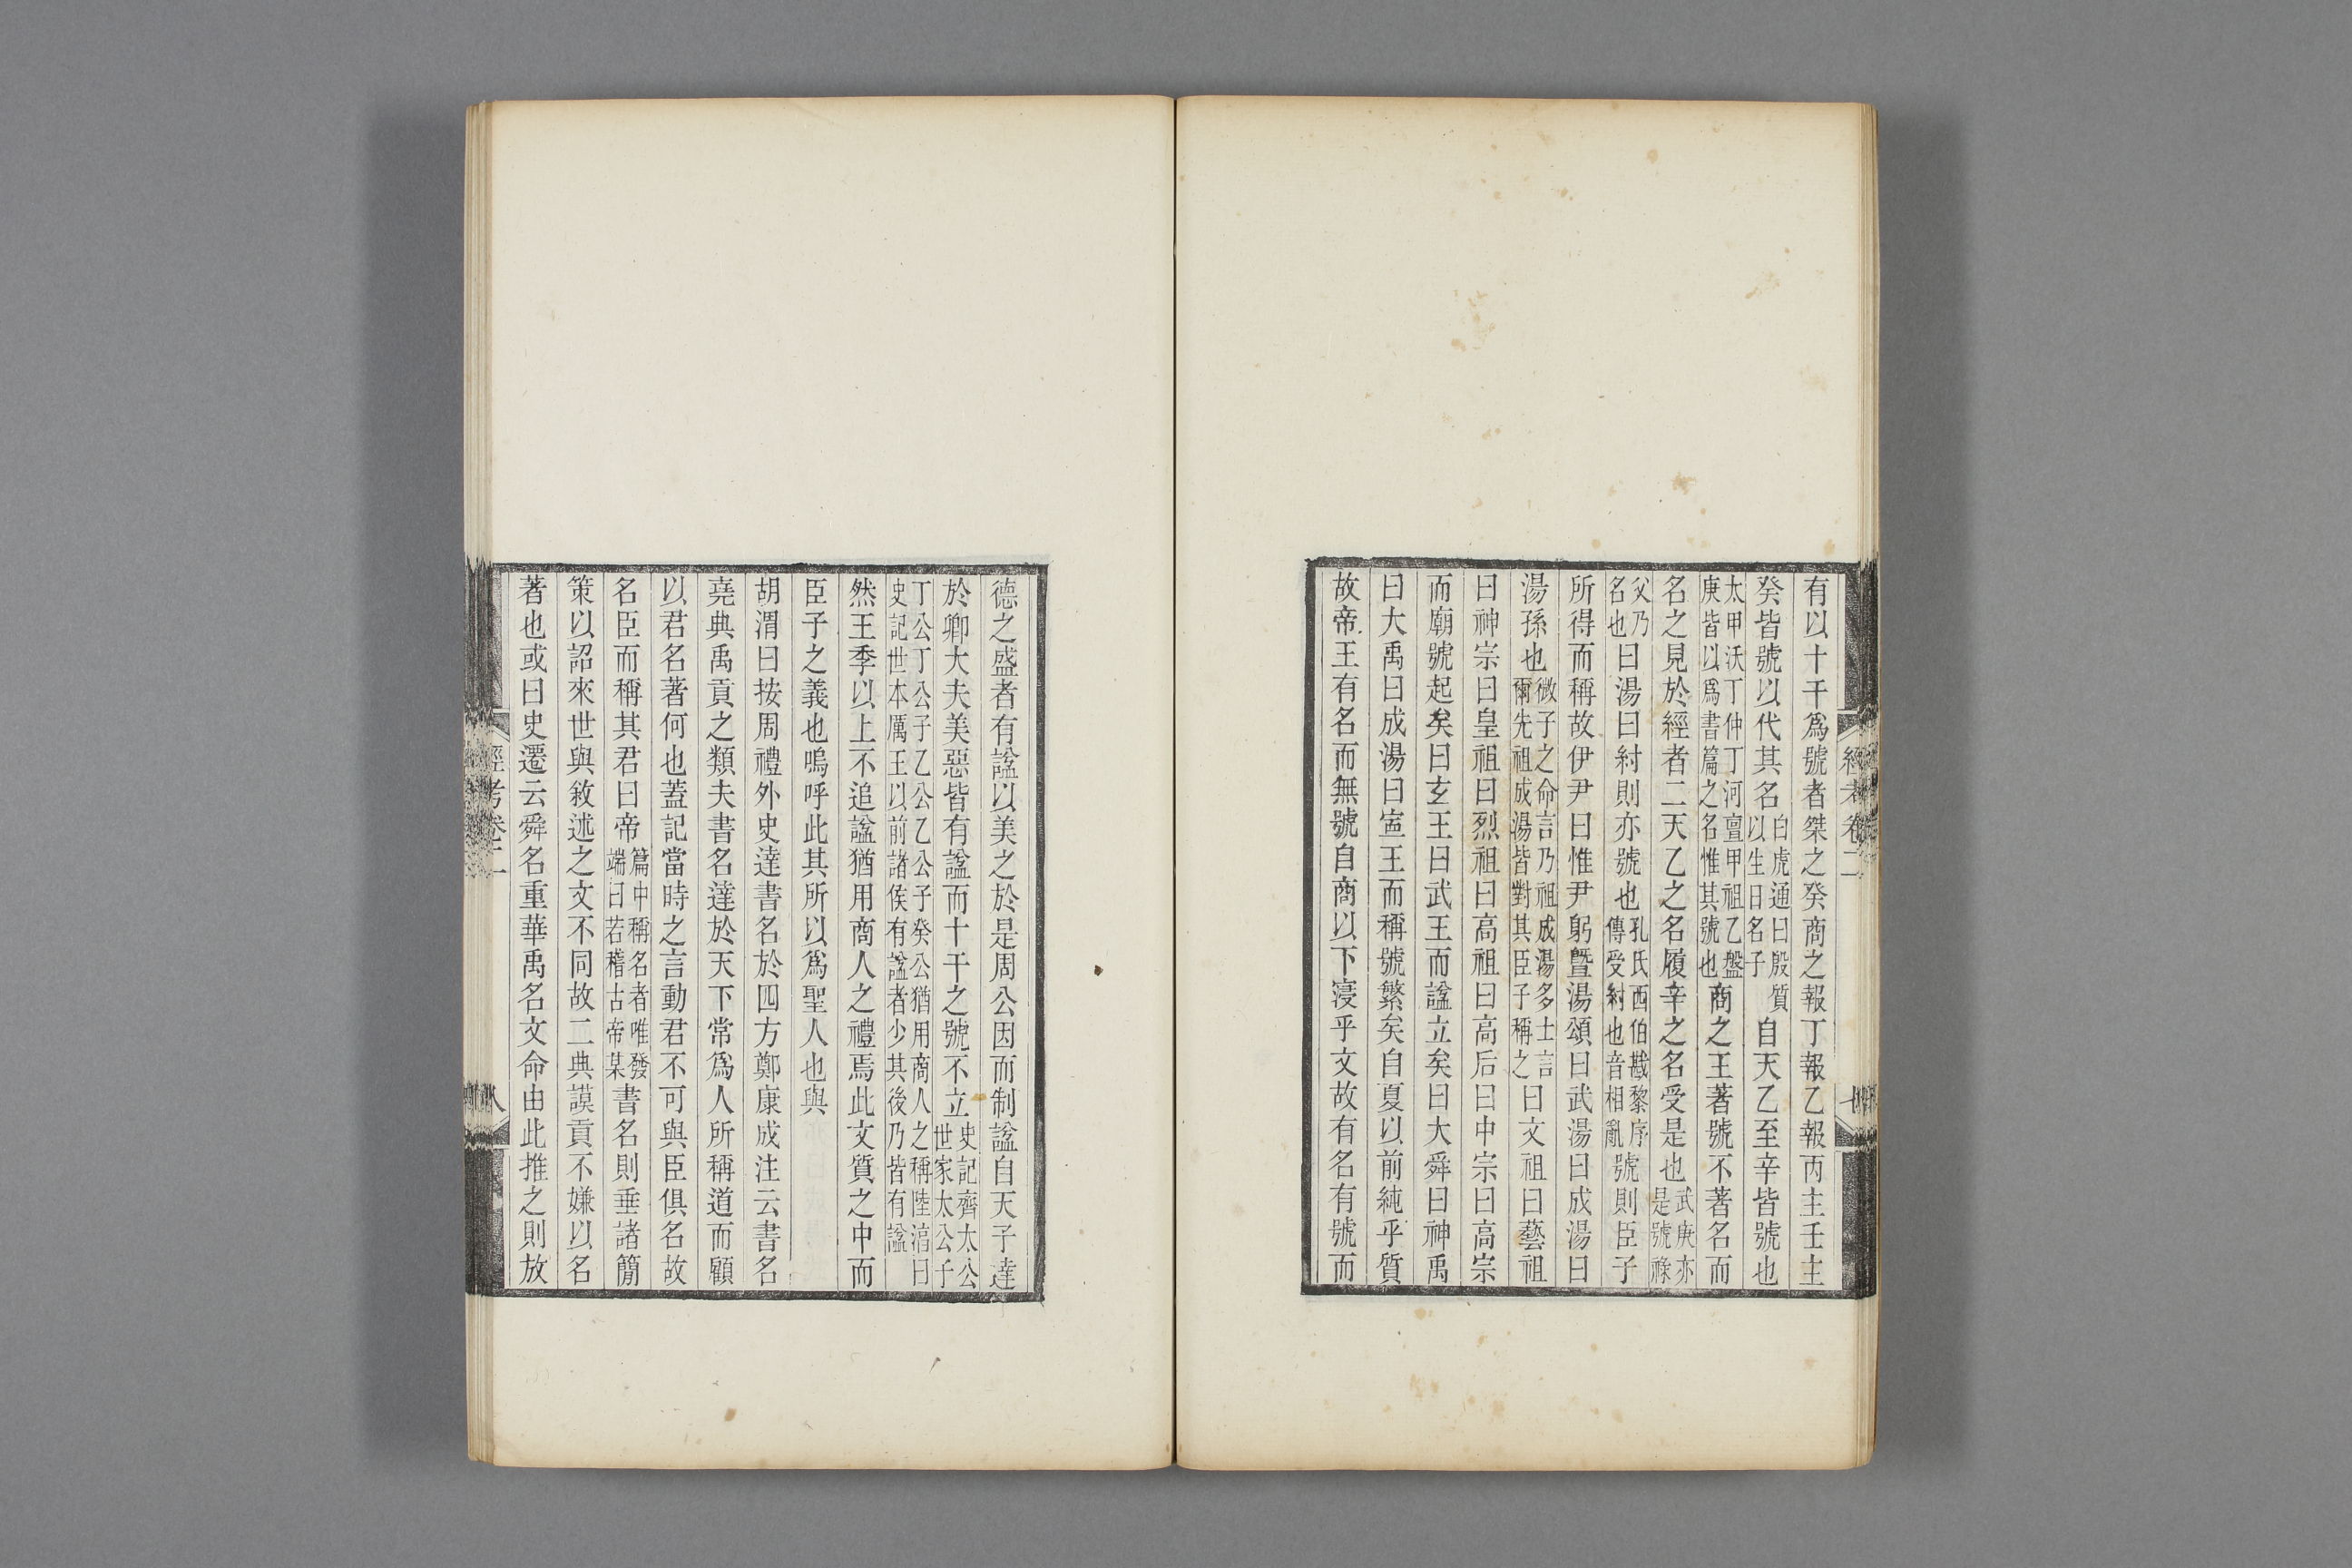 經考卷二
七
有以十干爲號者桀之癸商之報丁報乙報丙主壬主
癸皆號以代其名白虎通曰殷質以生日名子自天乙至辛皆號也
太甲沃丁仲丁河亶甲祖乙盤庚皆以爲書篇之名惟其號也商之王著號不著名而
名之見於經者二天乙之名履辛之名受是也武庚亦是號祿
父乃名也曰湯曰紂則亦號也孔氏西伯戡黎序傳受紂也音相亂號則臣子
所得而稱故伊尹曰惟尹躬曁湯頌曰武湯曰成湯曰
湯孫也微子之命言乃祖成湯多士言爾先祖成湯皆對其臣子稱之曰文祖曰藝祖
曰神宗曰皇祖曰烈祖曰高祖曰高后曰中宗曰高宗
而廟號起矣曰玄王曰武王而諡立矣曰大舜曰神禹
曰大禹曰成湯曰寍王而稱號繁矣自夏以前純乎質
故帝王有名而無號自商以下寖乎文故有名有號而
德之盛者有諡以美之於是周公因而制諡自天子達
於卿大夫美惡皆有諡而十干之號不立史記齊太公世家太公子
丁公丁公子乙公乙公子癸公猶用商人之稱陸淳曰史記世本厲王以前諸侯有諡者少其後乃皆有諡
然王季以上不追諡猶用商人之禮焉此文質之中而
臣子之義也嗚呼此其所以爲聖人也與
胡渭曰按周禮外史達書名於四方鄭康成注云書名
堯典禹貢之類夫書名達於天下常爲人所稱道而顧
以君名著何也蓋記當時之言動君不可與臣俱名故
名臣而稱其君曰帝篇中稱名者唯發端曰若稽古帝某書名則垂諸簡
策以詔來世與敘述之文不同故二典謨貢不嫌以名
著也或曰史遷云舜名重華禹名文命由此推之則放
經考卷二
八